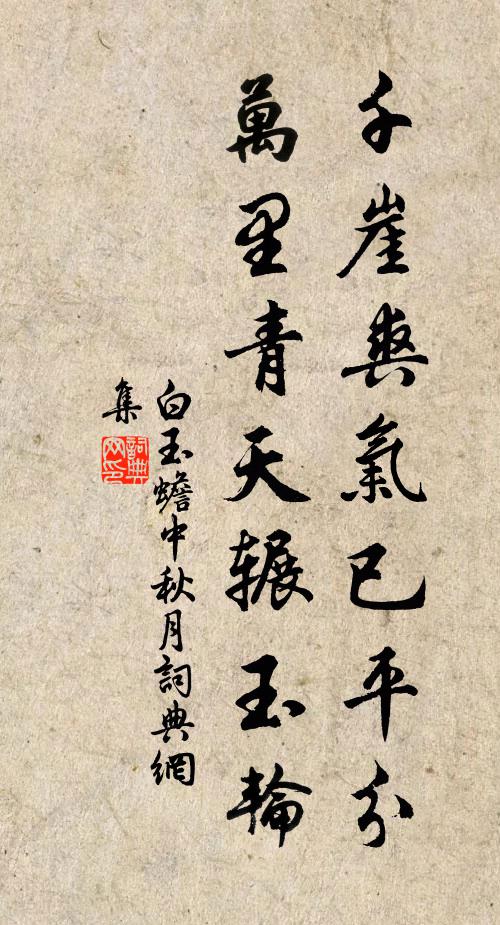 千崖爽氣已平分
萬里青天辗玉輪
白玉蟾中秋月詞典網
集
詞典網印